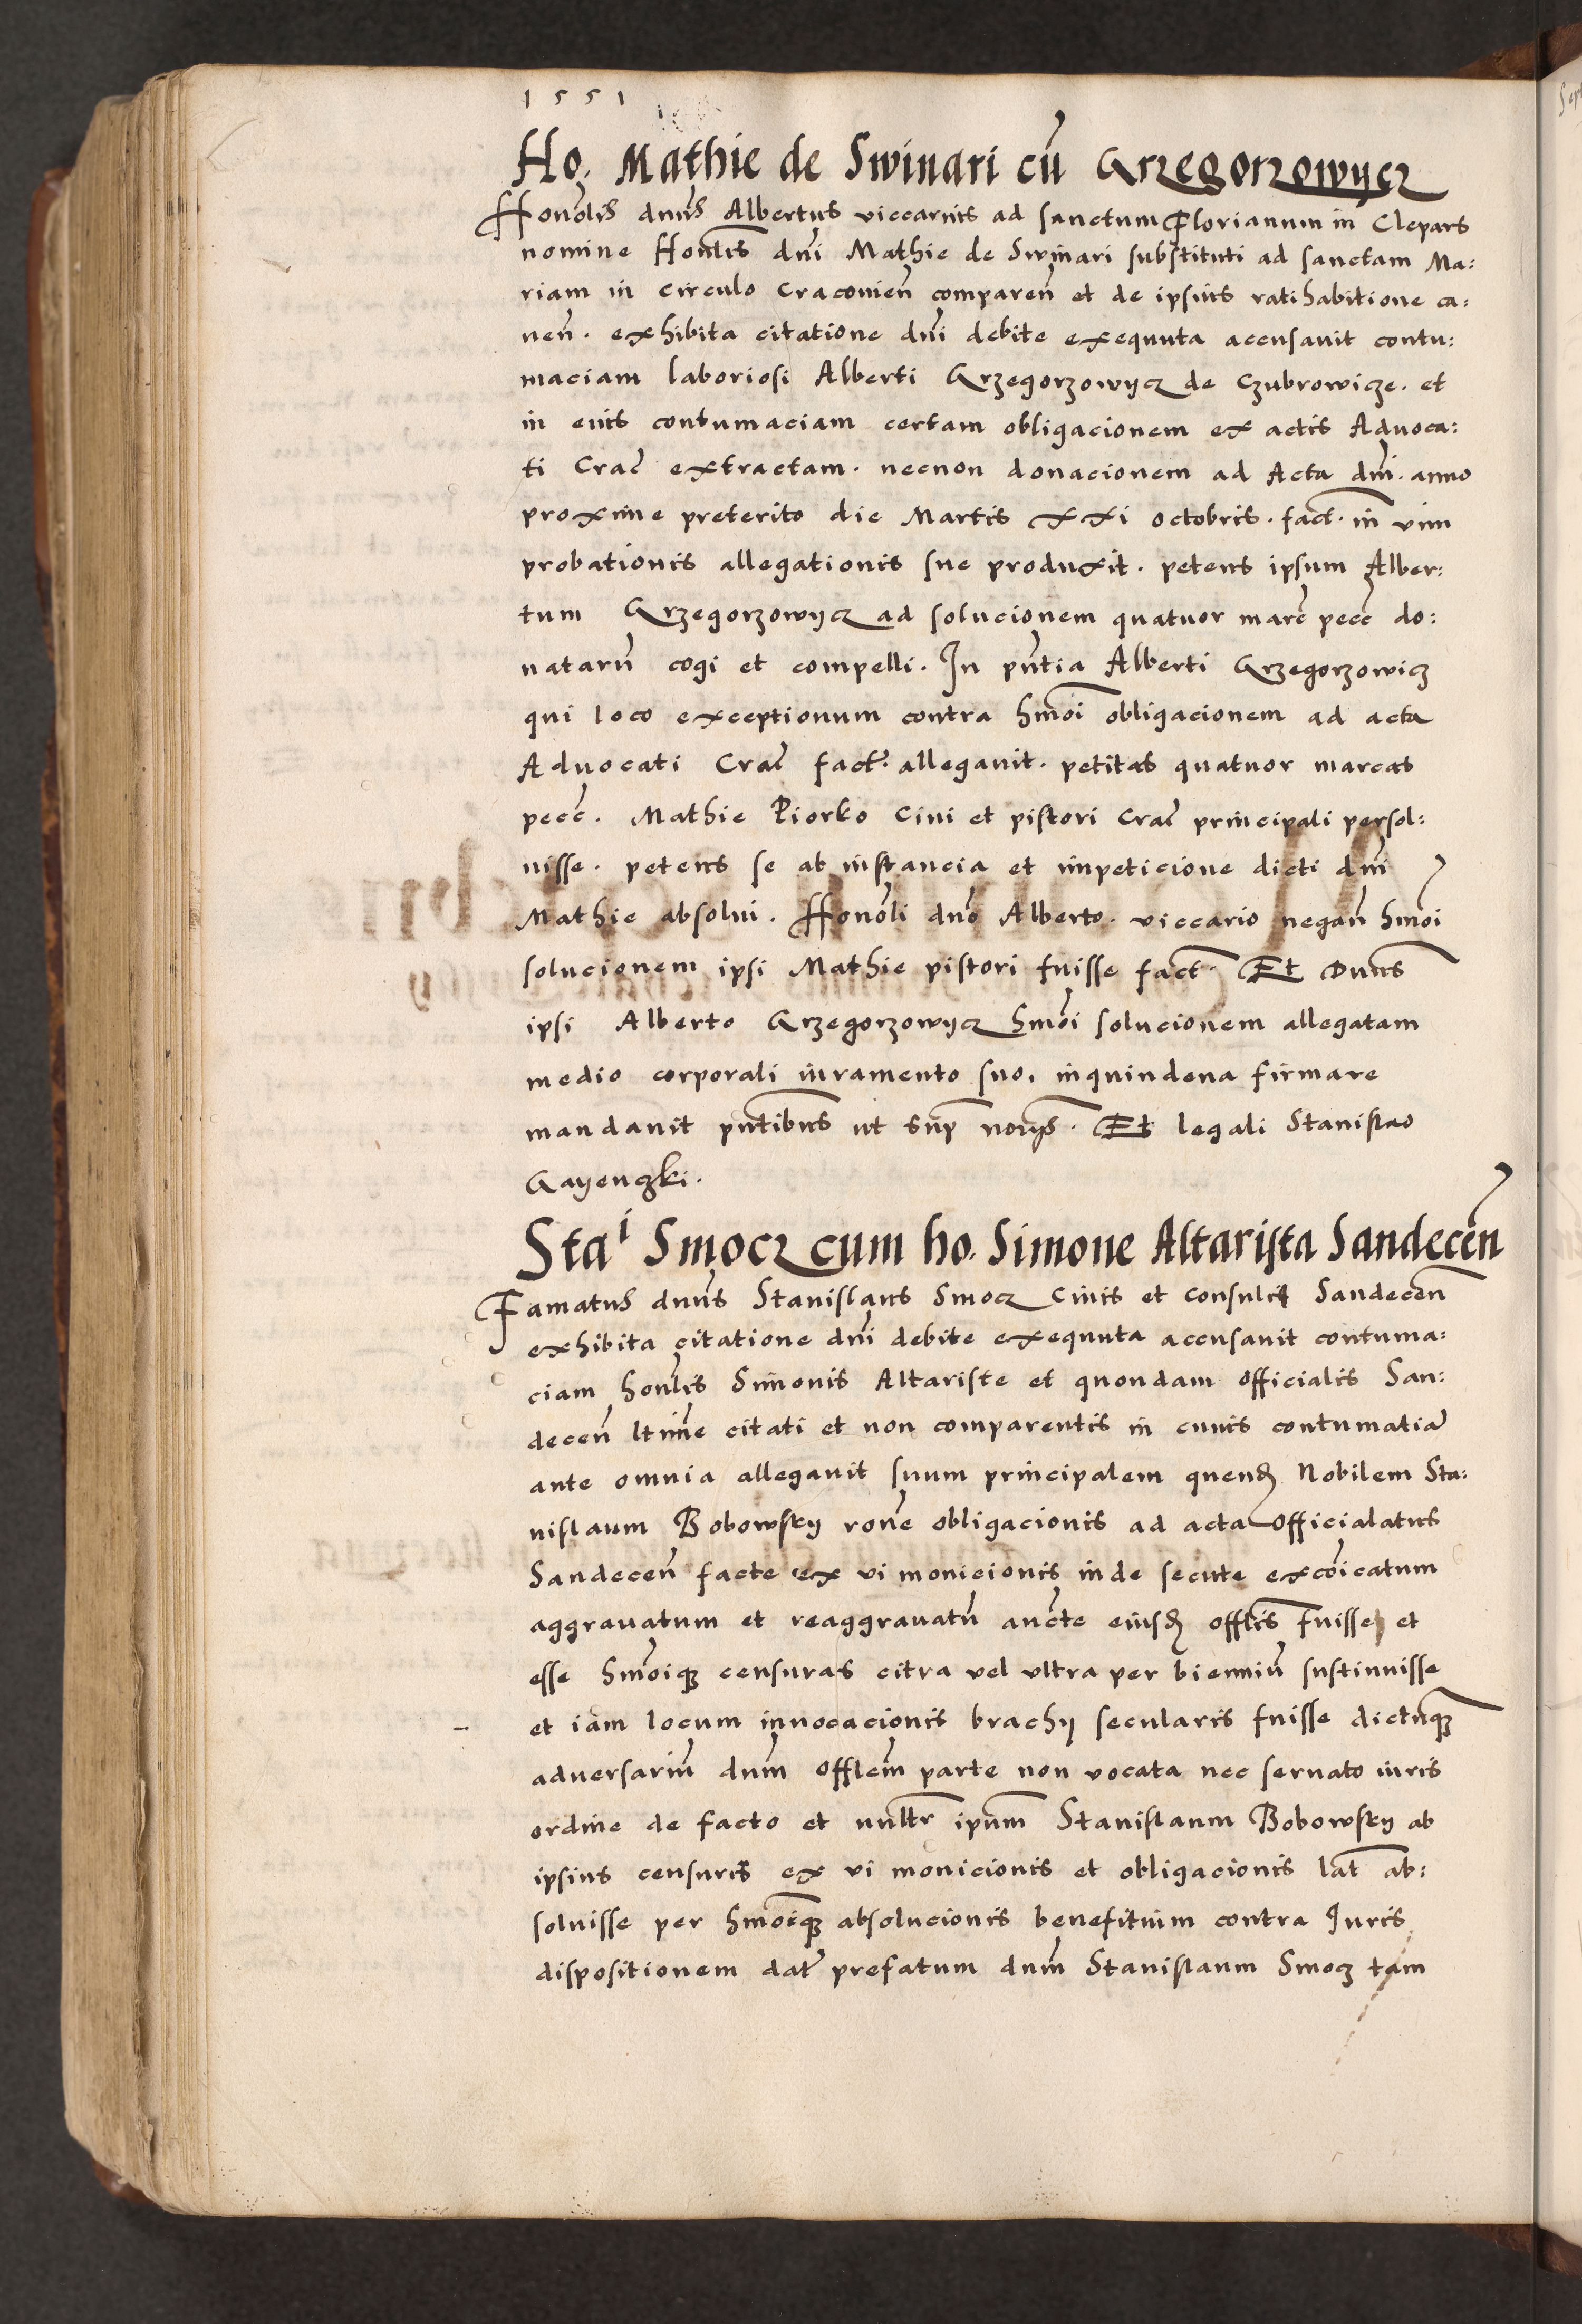 1551
Ho. Mathie de Swinari cū Grzegorzowycz
Honōlis dnūs Albertus viccarius ad sanctum Florianum in Clepars
nomine Honlis dnī Mathie de Swinari substituti ad sanctam Ma:
riam in circulo Craconien̄ comparen̄ et de ipsius ratihabitione ca:
uen̄. exhibita citatione dnī debite exequuta accusauit contu:
maciam laboriosi Alberti Grzegorzowycz de Czubrowicze. et
in eius contumaciam certam obligacionem ex actis Aduoca:
ti Crac̄ extractam. necnon donacionem ad Acta dnī. anno
proxime preterito die Martis xxi octobris. fact. in vim
probationis allegationis sue produxit. petens ipsum Alber:
tum Grzegorzowycz ad solucionem quatuor marc̄ pecc̄ do:
natarū cogi et compelli. In pn̄tia Alberti Grzegorzowicz
qui loco exceptionum contra hmōi obligacionem ad acta
Aduocati Crac̄ fact. allegauit. petitas quatuor marcas
pecc̄. Mathie Piorko Ciui et pistori Crac̄ principali persol:
uisse. petens se ab instancia et impeticione dicti dnī
Mathie absolui. Honōli dnō Alberto. viccario negan̄ hmōi
solucionem ipsi Mathie pistori fuisse fact. Et Dnūs
ipsi Alberto Grzegorzowycz hmōi solucionem allegatam
medio corporali iuramento suo. inquindena firmare
mandauit pn̄tibus ut sup̄ norys. Et legali Stanislao
Gayenczki.
Stai Smocz cum ho. Simone Altarista Sandecen̄
Famatus dnūs Stanislaus Smocz Ciuis et Consulis Sandecen̄
exhibita citatione dnī debite exequuta accusauit contuma:
ciam honlis Simonis Altariste et quondam officialis San:
decen̄ ltīme citati et non comparentis in cuius contumatiā
ante omnia allegauit suum principalem quend̄ Nobilem Sta:
nislaum Bobowsky ronē obligacionis ad acta Officialatus
Sandecen̄ facte ex vi monicionis inde secute excōicatum
aggrauatum et reaggrauatū aucte eiusd̄ offlis fuisse et
esse hmōiqz censuras citra vel vltra per bienniū sustinuisse
et iam locum inuocacionis brachy secularis fuisse dictūqz
aduersariū dnm̄ offlem̄ parte non vocata nec seruato iuris
ordine de facto et nullr̄ ipum̄ Stanislaum Bobowsky ab
ipsius censuris ex vi monicionis et obligacionis lat̄ ab:
soluisse per hmōiqz absolucionis benefitium contra Iuris
dispositionem dat̄ prefatum dnm̄ Stanislaum Smocz tam